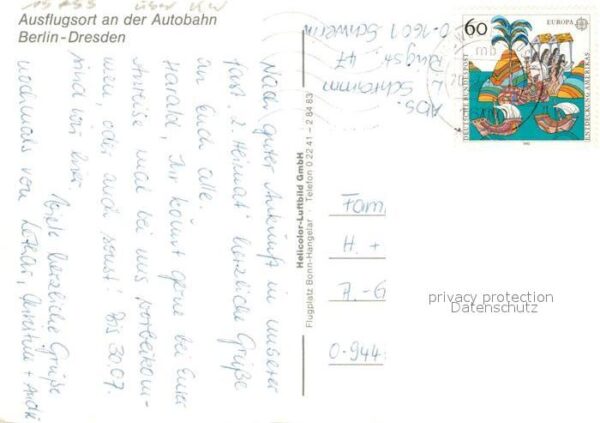 Ausflugsort an der Autobahn
Berlin-Dresden
Nach guter Ankunft in unserer
fast 2. Heimat herzliche Grüße
an Euch alle.
Harald, Ihr könnt gerne bei Eurer
Anreise mal bei uns vorbeikom-
men, oder auch sonst! Bis 30.07.
sind wir hier.
Viele herzliche Grüße
nochmals von Lothar, Christine + André
Helicolor-Luftbild GmbH
Flugplatz Bonn-Hangelar · Telefon 0 22 41 – 2 84 63
Abs.
L. Schramm
Ringstr. 47
O-1601 Schwerin
60
EUROPA
DEUTSCHE BUNDESPOST
ENTDECKUNG AMERIKAS
1992
Fam
H. +
A.-G
O-944
privacy protection
Datenschutz